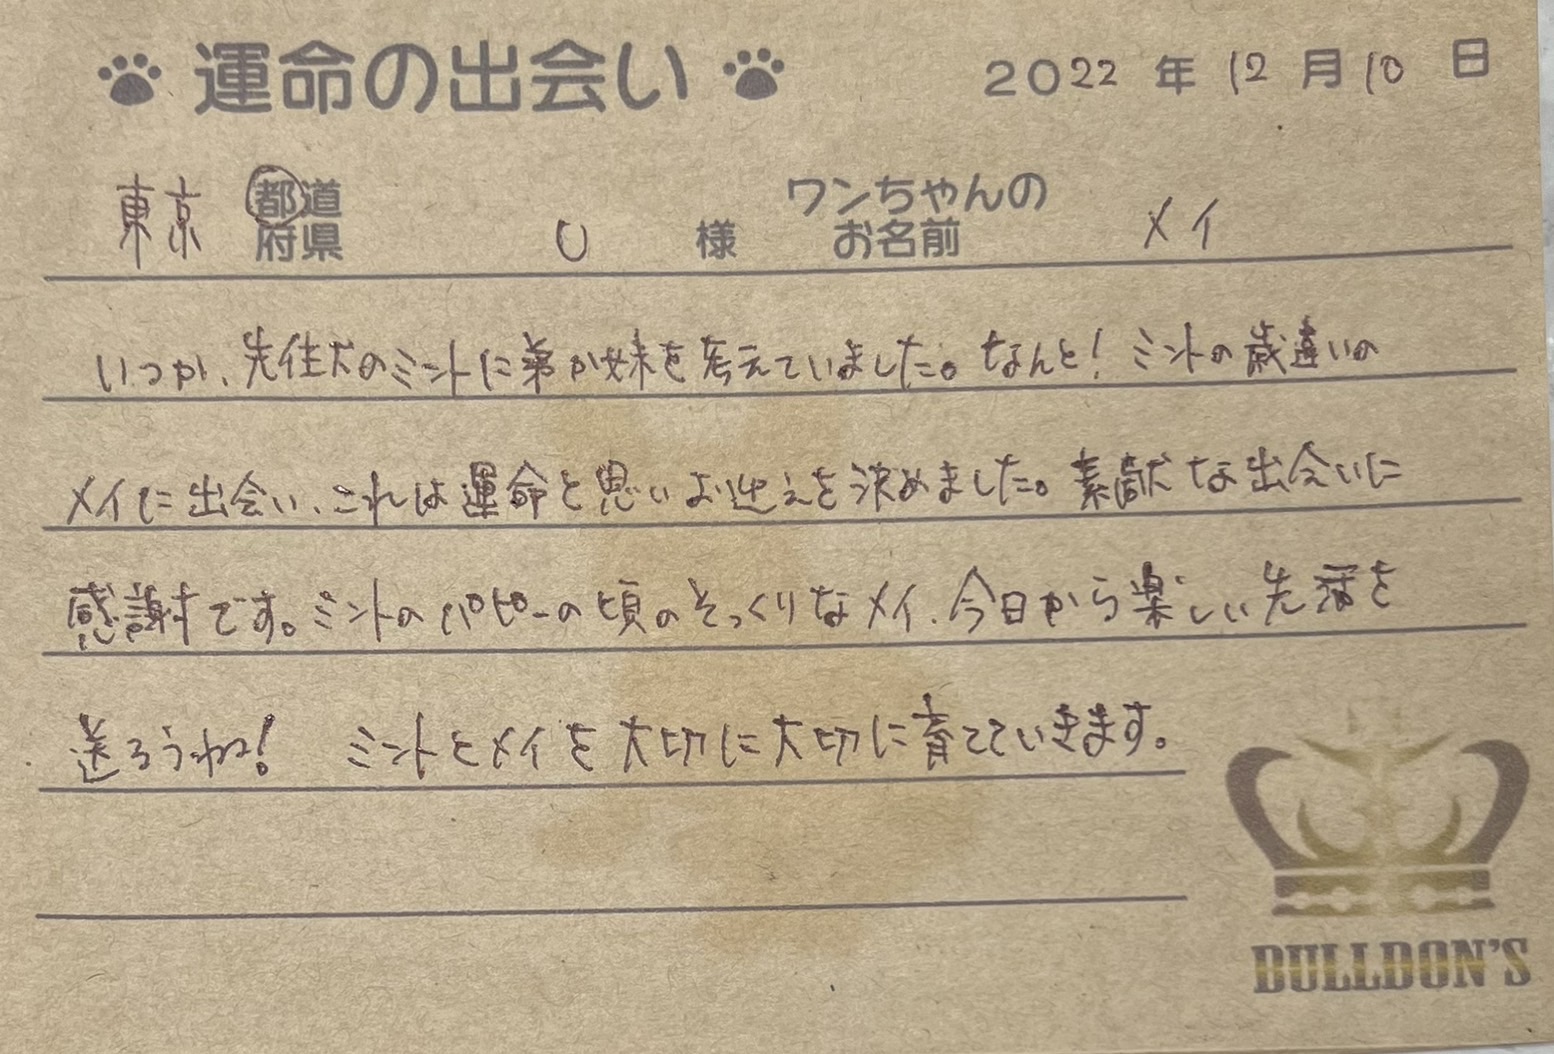 運命の出会い 2022年12月10日
東京 都道府県 U 様 ワンちゃんのお名前 メイ
いつか、先住犬のミントに弟か妹を考えていました。なんと!ミントの歳違いの
メイに出会い、これは運命と思いお迎えを決めました。素敵な出会いに
感謝です。ミントのパピーの頃のそっくりなメイ、今日から楽しい生活を
送ろうね! ミントとメイを大切に大切に育てていきます。
BULLDON'S